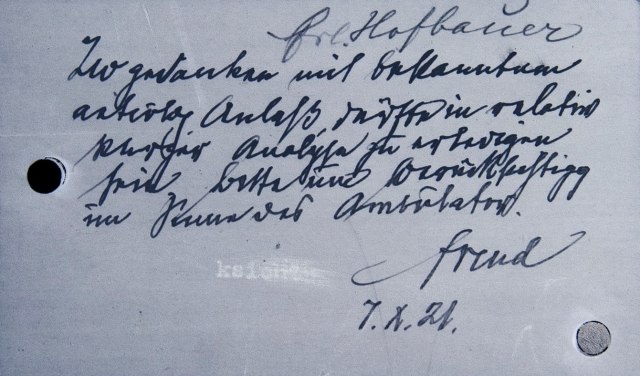 Frl. Hofbauer
Zwgedanken mit bekanntem
aetiolog Anlaß dürfte in relativ
kurzer Analyse zu erledigen
sein bitte um Berücksichtigg
im Sinne des Ambulator.
Freud
7.X.21.